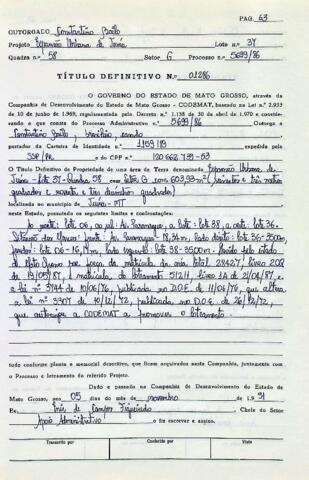 PAG. 63
OUTORGADO Constantino Baílo
Projeto Expansão Urbana de Juína Lote nº 37
Quadra nº 58 Setor G Processo nº 5699/86
TÍTULO DEFINITIVO Nº 01286
O GOVERNO DO ESTADO DE MATO GROSSO, através da
Companhia de Desenvolvimento do Estado de Mato Grosso - CODEMAT, baseado na Lei n.º 2.933
10 de junho de 1969, regulamentada pelo Decreto n.º 1.138 de 30 de abril de 1970 e consti-
endo o que consta do Processo Administrativo nº 5699/86 Outorga a
brasileiro,
portador da Carteira de Identidade n.º 1159119 expedida pelo
SSP/PR e do CPF nº 120 662 799-53
O Título Definitivo de Propriedade de uma área de Terra denominada Expansão Urbana de
Juína - Lote 37 - Quadra 58, com Setor G com 603,93m² (seiscentos e três metros
quadrados e noventa e três decímetros quadrados)
localizada no município de Juína - MT
neste Estado, possuindo os seguintes limites e confrontações:
Ao norte: lote 06, ao sul: Av. a leste: lote 38, a oeste: lote 36.
frente: Av. 18,34m, lado direito: lote 36 - 35,00m,
fundos: lote 06 - lado esquerdo: lote 38 - 35,00m.
de Mato Grosso por força da matrícula da área total 28427, livro 2
13/05/87, matrícula do loteamento livro 3A de 21/04/87. e
a lei nº 3744 de 10/06/76, publicada no D.O.E. de 11/06/76, que altera
a lei nº 3307 de 10/12/72, publicada no D.O.E. de 26/12/72,
que autoriza a CODEMAT a promover o loteamento.
tudo conforme planta e memorial descritivo, que ficam arquivados nesta Companhia, juntamente com
o Processo e loteamento do referido Projeto.
Dado e passado na Companhia de Desenvolvimento do Estado de
Mato Grosso, aos 05 dias do mês de novembro de 19 91
Eu, Inês de Campos Figueiredo Chefe do Setor
Apoio Administrativo o fiz escrever e assino.
Transcrito por Conferido por Visto